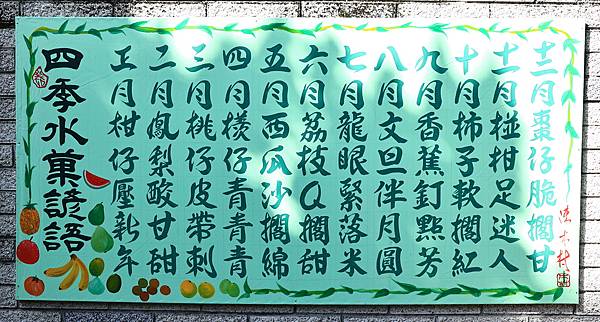 四季水菓諺語
正月柑仔壓新年
二月鳳梨酸甘甜
三月桃仔皮帶刺
四月檨仔青青青
五月西瓜沙擱綿
六月荔枝Q擱甜
七月龍眼緊落米
八月文旦伴月圓
九月香蕉釘點芳
十月柿子軟擱紅
十一月椪柑足迷人
十二月棗仔脆擱甘